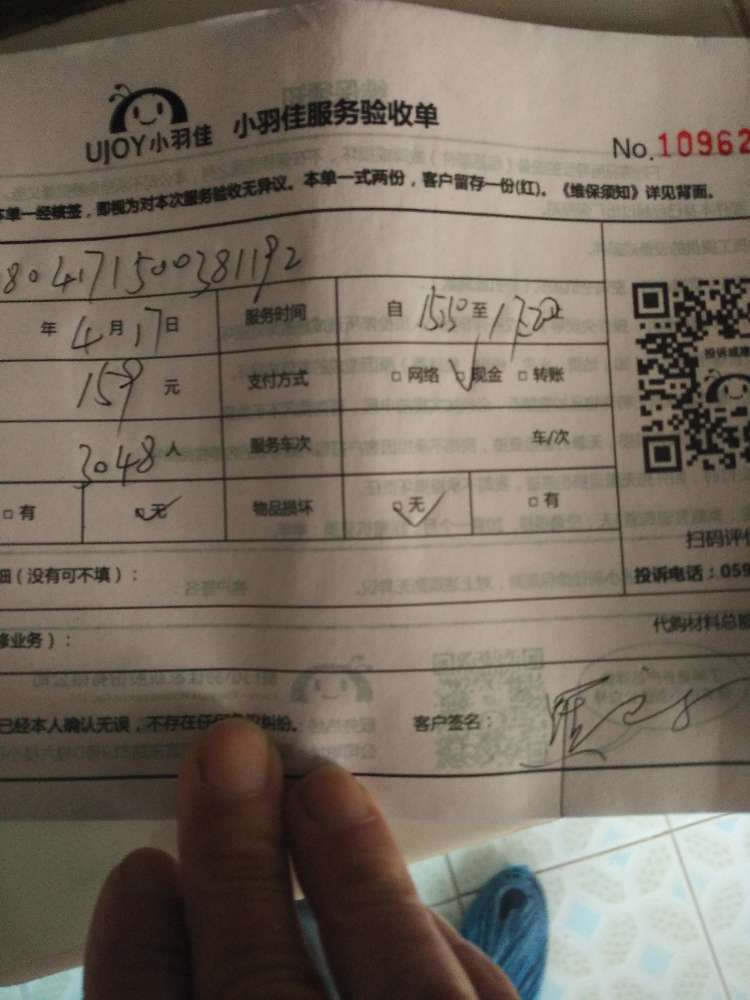 UJOY小羽佳 小羽佳服务验收单
No.10962
本单一经核签，即视为对本次服务验收无异议。本单一式两份，客户留存一份(红)。《维保须知》详见背面。
804171500381192
年4月17日 服务时间 自1550至1720止
159元 支付方式 □网络 □现金 □转账
3048人 服务车次 车/次
□有 □无 物品损坏 □无 □有
扫码评价
细（没有可不填）： 投诉电话：059
修业务）： 代购材料总额
已经本人确认无误，不存在任何 纠纷。 客户签名：